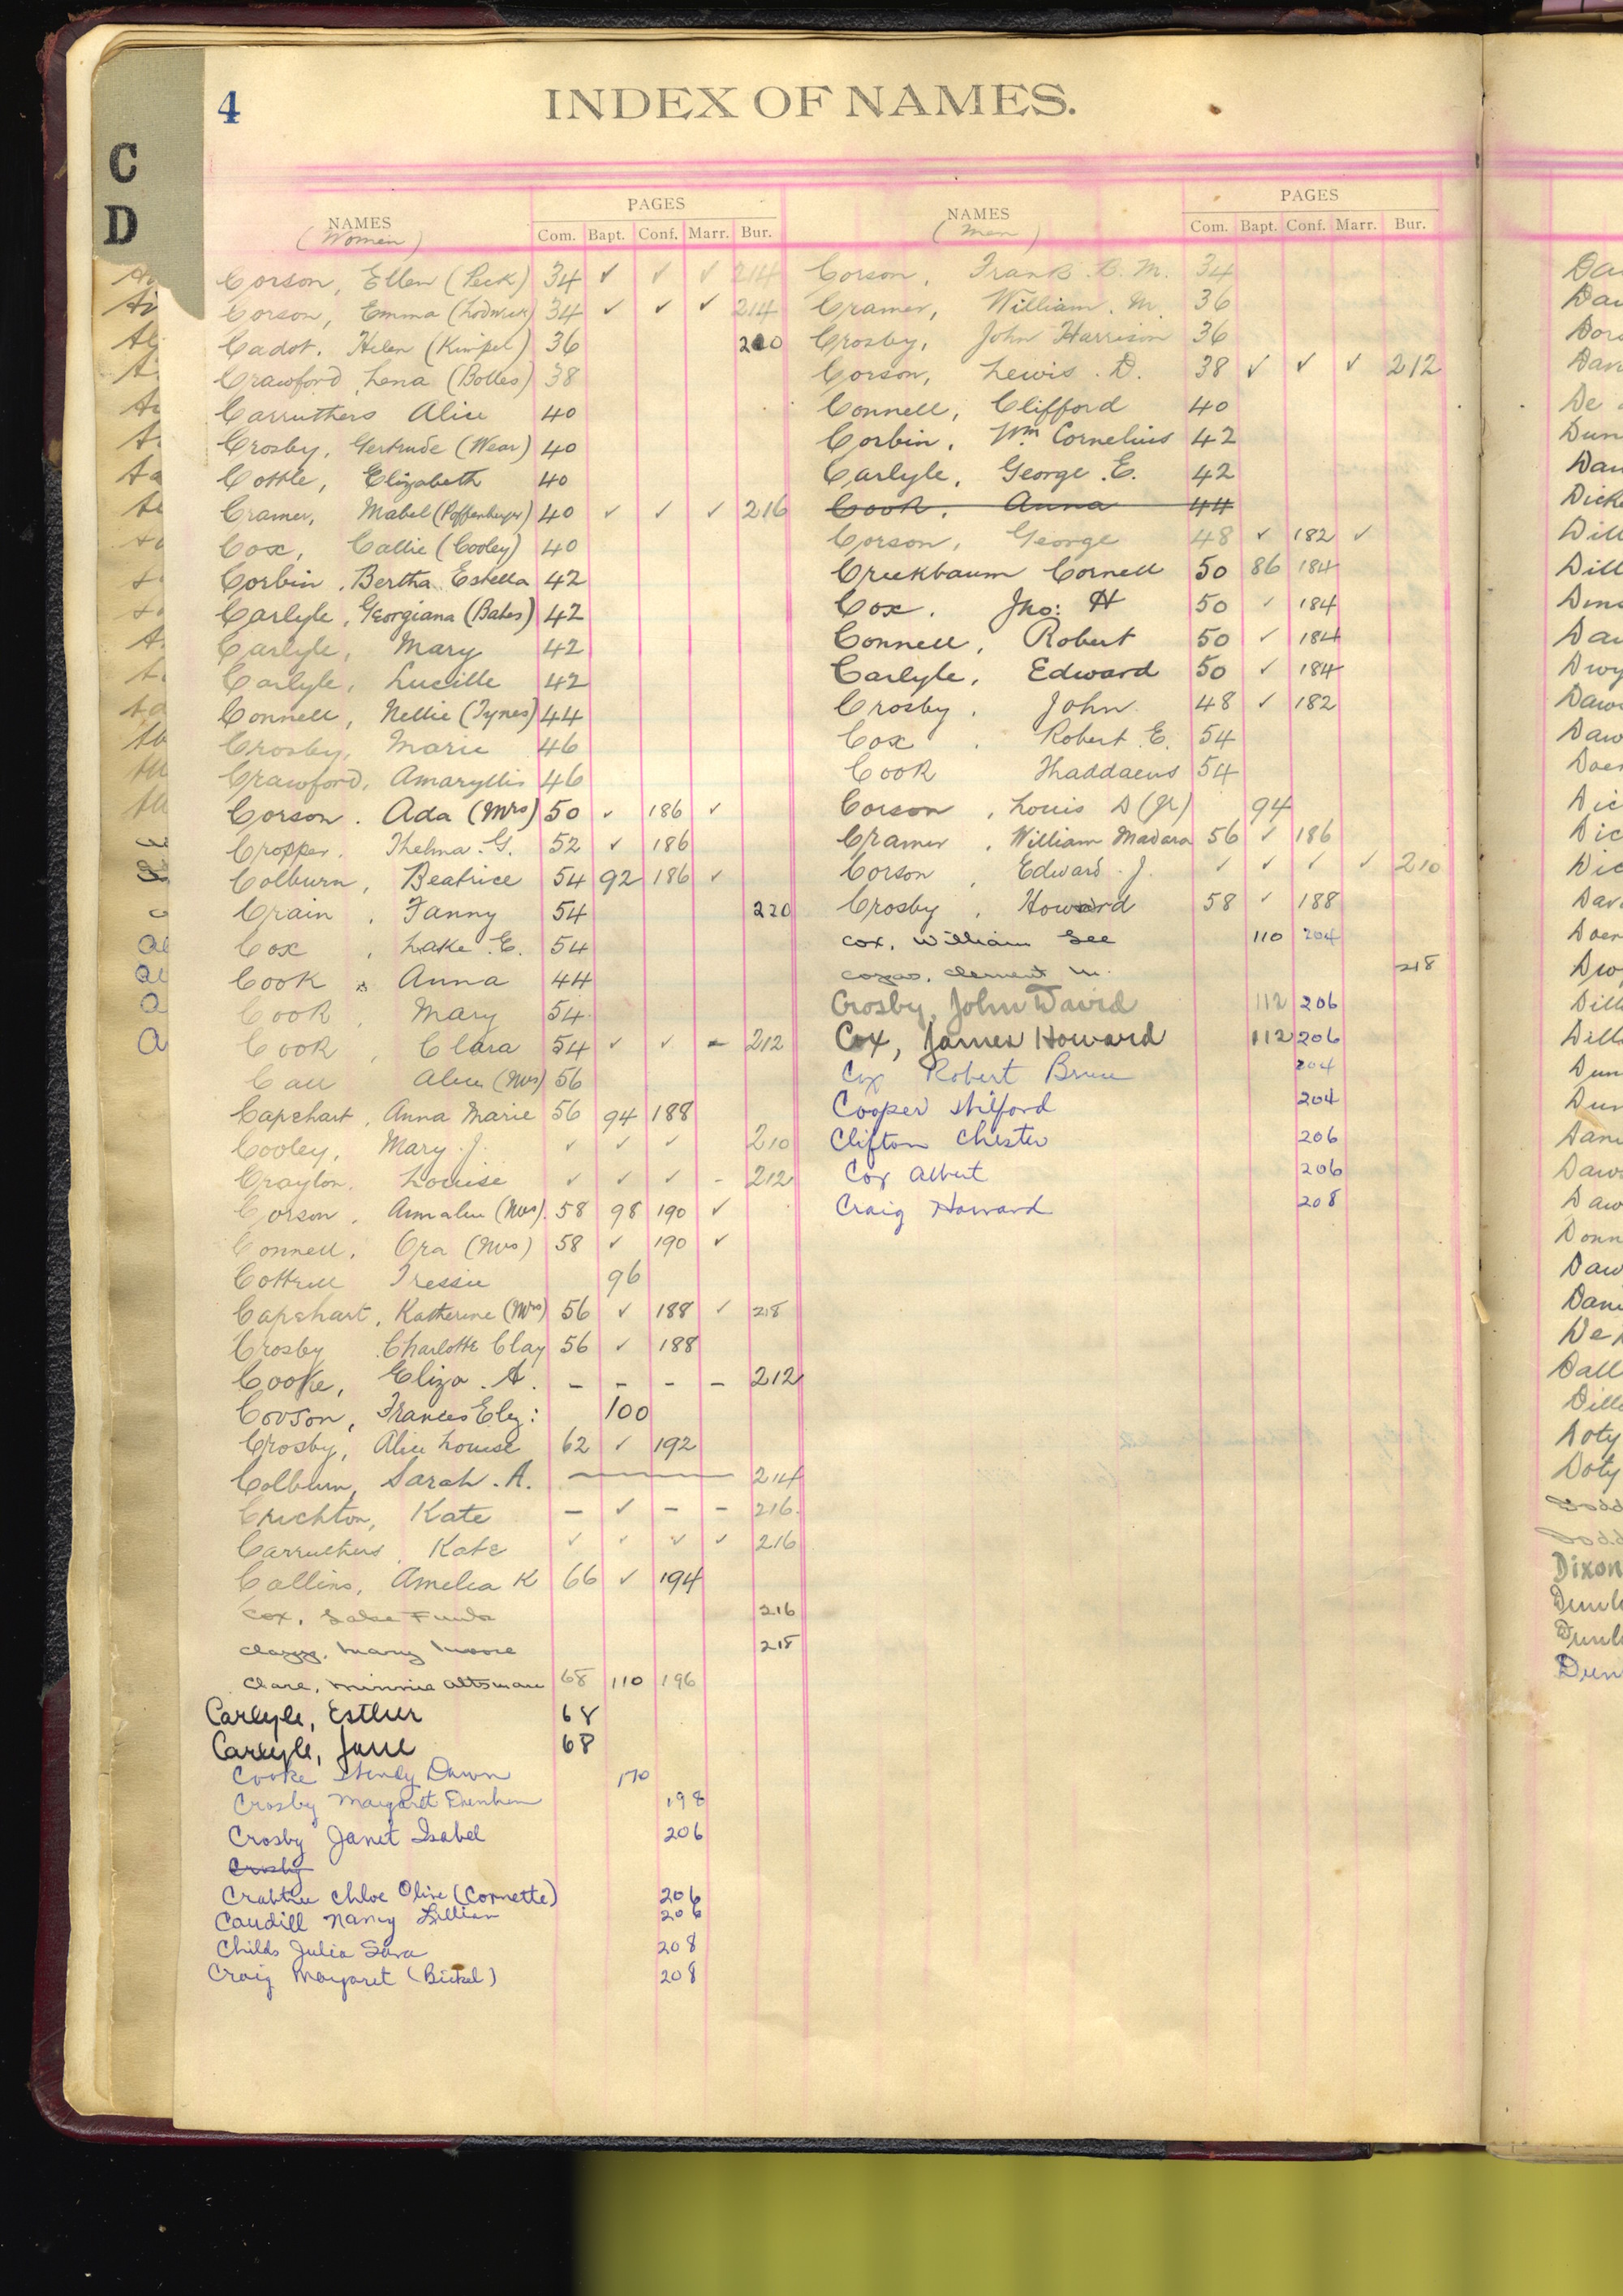 4
INDEX OF NAMES.
C
D
NAMES
(Women)
PAGES
Com. Bapt. Conf. Marr. Bur.
Corson, Ellen (Peck) 34 ✓ ✓ ✓ 214
Corson, Emma (Lodwick) 34 ✓ ✓ ✓ 214
Cadot, Helen (Kimpel) 36 220
Crawford, Lena (Bolles) 38
Carruthers Alice 40
Crosby, Gertrude (Wear) 40
Cottle, Elizabeth 40
Cramer, Mabel (Poffenberger) 40 ✓ ✓ ✓ 216
Cox, Callie (Cooley) 40
Corbin, Bertha Estella 42
Carlyle, Georgiana (Bates) 42
Carlyle, Mary 42
Carlyle, Lucille 42
Connell, Nellie (Tynes) 44
Crosby, Marie 46
Crawford, Amaryllis 46
Corson. Ada (Mrs) 50 ✓ 186 ✓
Cropper, Thelma G. 52 ✓ 186
Colburn, Beatrice 54 92 186 ✓
Crain, Fanny 54 220
Cox, Lake E. 54
Cook, Anna 44
Cook, Mary 54
Cook, Clara 54 ✓ ✓ - 212
Call Alice (Mrs) 56
Capehart, Anna Marie 56 94 188
Cooley, Mary J. ✓ ✓ ✓ 210
Crayton, Louise ✓ ✓ ✓ - 212
Corson, Annalee (Mrs). 58 98 190 ✓
Connell, Ora (Mrs) 58 ✓ 190 ✓
Cottrell Tressie 96
Capehart, Katherine (Mrs) 56 ✓ 188 ✓ 218
Crosby Charlotte Clay 56 ✓ 188
Cooke, Eliza A. - - - - 212
Corson, Frances Eliz: 100
Crosby, Alice Louise 62 ✓ 192
Colburn, Sarah A. — 214
Crichton, Kate - ✓ - - 216
Carruthers, Kate ✓ ✓ ✓ ✓ 216
Collins, Amelia K 66 ✓ 194
Cox, Lake 216
Clagg, Mary Moore 218
Clare, Minnie Altsman 68 110 196
Carlyle, Esther 68
Carlyle, Jane 68
Cooke Dawn 170
Crosby Margaret 198
Crosby Janet Isabel 206
Crosby
Crabtree Chloe Olive (Cornette) 206
Caudill Nancy Lillian 206
Childs Julia Sara 208
Craig Margaret (Bickel) 208
NAMES
(Men)
PAGES
Com. Bapt. Conf. Marr. Bur.
Corson, Frank B. M. 34
Cramer, William M. 36
Crosby, John Harrison 36
Corson, Lewis D. 38 ✓ ✓ ✓ 212
Connell, Clifford 40
Corbin, Wm Cornelius 42
Carlyle, George E. 42
Cook, Anna 44
Corson, George 48 ✓ 182 ✓
Creekbaum Cornell 50 86 184
Cox, Jno: H 50 ✓ 184
Connell, Robert 50 ✓ 184
Carlyle, Edward 50 ✓ 184
Crosby, John 48 ✓ 182
Cox, Robert E. 54
Cook Thaddaeus 54
Corson, Louis D (Jr) 94
Cramer, William Madara 56 ✓ 186
Corson, Edward J. ✓ ✓ ✓ ✓ 210
Crosby, Howard 58 ✓ 188
Cox, William Lee 110 204
Clement M. 218
Crosby, John David 112 206
Cox, James Howard 112 206
Cox Robert Bruce 204
Cooper Wilford 204
Clifton Chester 206
Cox Albert 206
Craig Howard 208